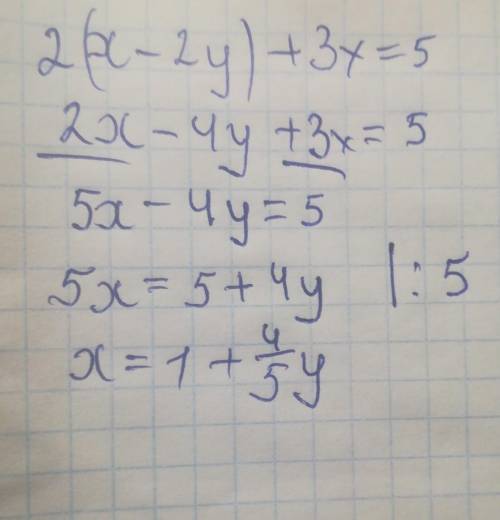 2(x - 2y) + 3x = 5
2x - 4y + 3x = 5
5x - 4y = 5
5x = 5 + 4y |: 5
x = 1 + 4/5 y